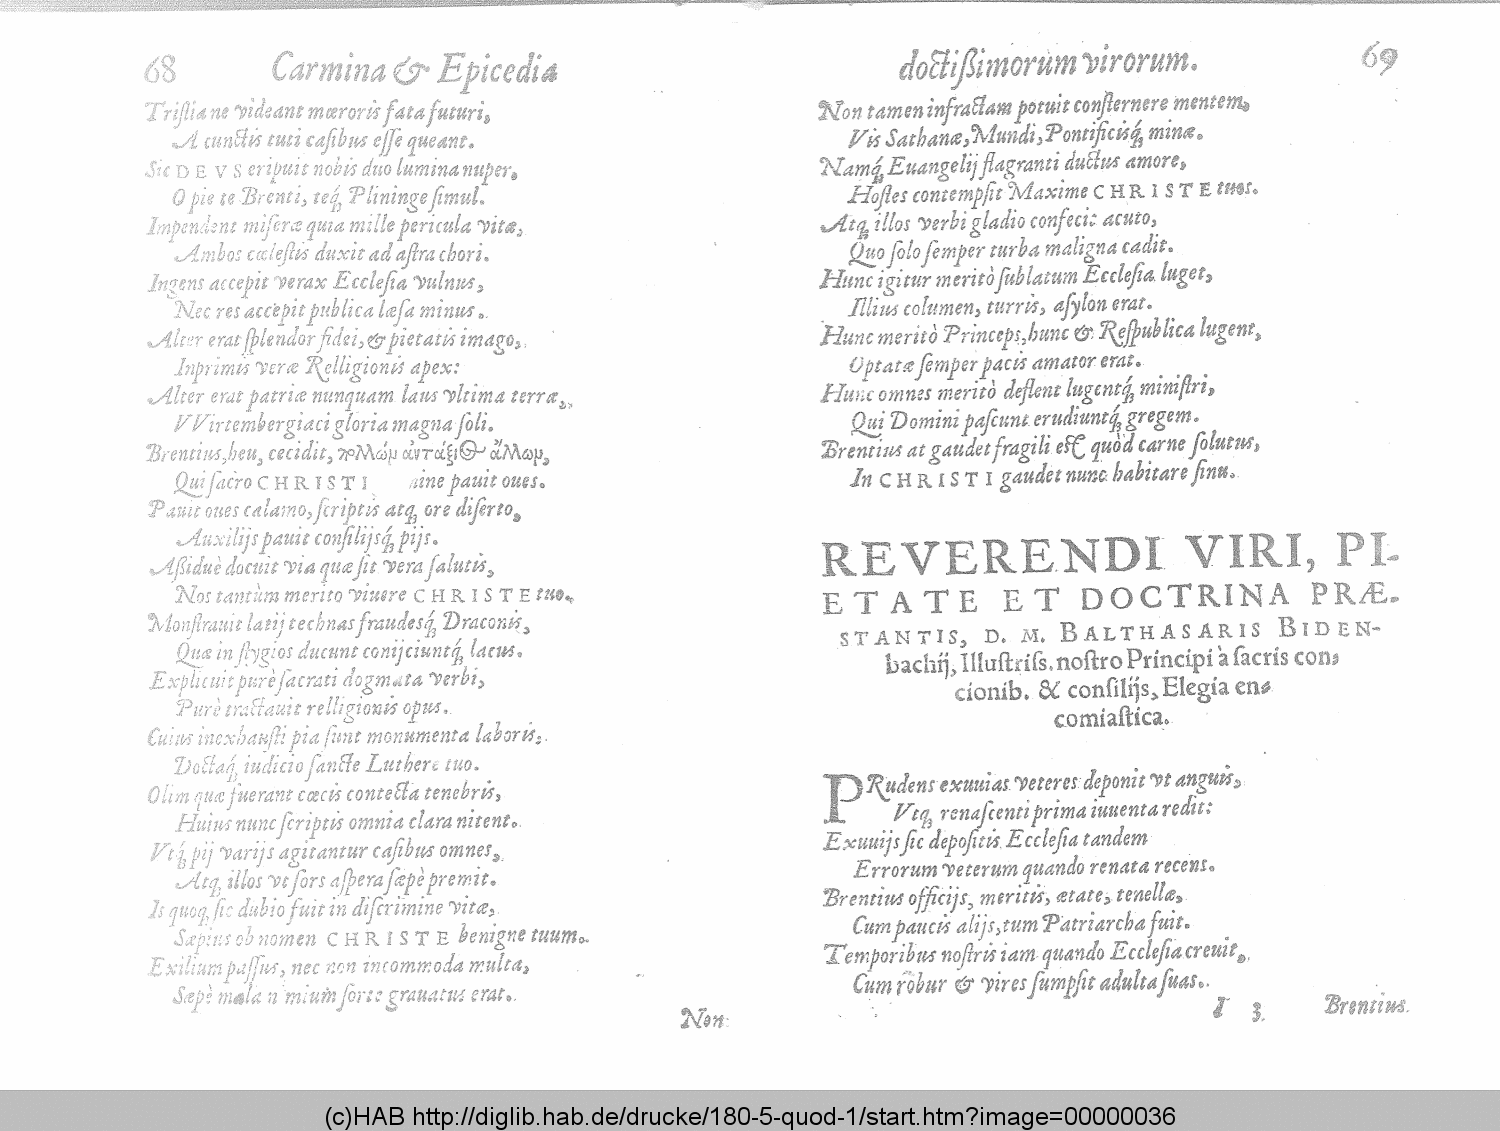 68 Carmina & Epicedia
Tristia ne videant mœroris fata futuri,
A cunctis tuti casibus esse queant.
Sic DEVS eripuit nobis duo lumina nuper,
O pie te Brenti, teq́; Plininge simul.
Impendent miseræ quia mille pericula vitæ,
Ambos cœlestis duxit ad astra chori.
Ingens accepit verax Ecclesia vulnus,
Nec res accepit publica læsa minus.
Alter erat splendor fidei, & pietatis imago,
Inprimis veræ Relligionis apex:
Alter erat patriæ nunquam laus vltima terræ,
VVirtembergiaci gloria magna soli.
Brentius, heu, cecidit, πολλῶμ ἀντάξιος ἄλλωμ,
Qui sacro CHRISTI ine pauit oues.
Pauit oues calamo, scriptis atq; ore diserto,
Auxilijs pauit consilijsq́; pijs.
Aßiduè docuit via quæ sit vera salutis,
Nos tantùm merito viuere CHRISTE tuo.
Monstrauit latij technas fraudesq́; Draconis,
Quæ in stygios ducunt conijciuntq́; lacus.
Explicuit purè sacrati dogmata verbi,
Purè tractauit relligionis opus.
Cuius inexhausti pia sunt monumenta laboris,
Doctaq́; iudicio sancte Luthere tuo.
Olim quæ fuerant cœcis contecta tenebris,
Huius nunc scriptis omnia clara nitent.
Vtq́; pij varijs agitantur casibus omnes,
Atq; illos vt sors aspera sæpè premit.
Is quoq; sic dubio fuit in discrimine vitæ,
Sæpius ob nomen CHRISTE benigne tuum.
Exilium passus, nec non incommoda multa,
Sæpè mala nimiùm sorte grauatus erat.
Non
doctißimorum virorum. 69
Non tamen infractam potuit consternere mentem,
Vis Sathanæ, Mundi, Pontificisq́; minæ.
Namq́; Euangelij flagranti ductus amore,
Hostes contempsit Maxime CHRISTE tuos.
Atq; illos verbi gladio confecit acuto,
Quo solo semper turba maligna cadit.
Hunc igitur meritò sublatum Ecclesia luget,
Illius columen, turris, asylon erat.
Hunc meritò Princeps, hunc & Respublica lugent,
Optatæ semper pacis amator erat.
Hunc omnes meritò deflent lugentq́; ministri,
Qui Domini pascunt erudiuntq́; gregem.
Brentius at gaudet fragili est quòd carne solutus,
In CHRISTI gaudet nunc habitare sinu.
REVERENDI VIRI, PI-
ETATE ET DOCTRINA PRÆ-
STANTIS, D. M. BALTHASARIS BIDEN-
bachij, Illustriss. nostro Principi à sacris con-
cionib. & consilijs, Elegia en-
comiastica.
PRudens exuuias veteres deponit vt anguis,
Vtq; renascenti prima iuuenta redit:
Exuuijs sic depositis Ecclesia tandem
Errorum veterum quando renata recens.
Brentius officijs, meritis, ætate, tenellæ,
Cum paucis alijs, tum Patriarcha fuit.
Temporibus nostris iam quando Ecclesia creuit,
Cum robur & vires sumpsit adulta suas.
I 3 Brentius.
(c)HAB http://diglib.hab.de/drucke/180-5-quod-1/start.htm?image=00000036